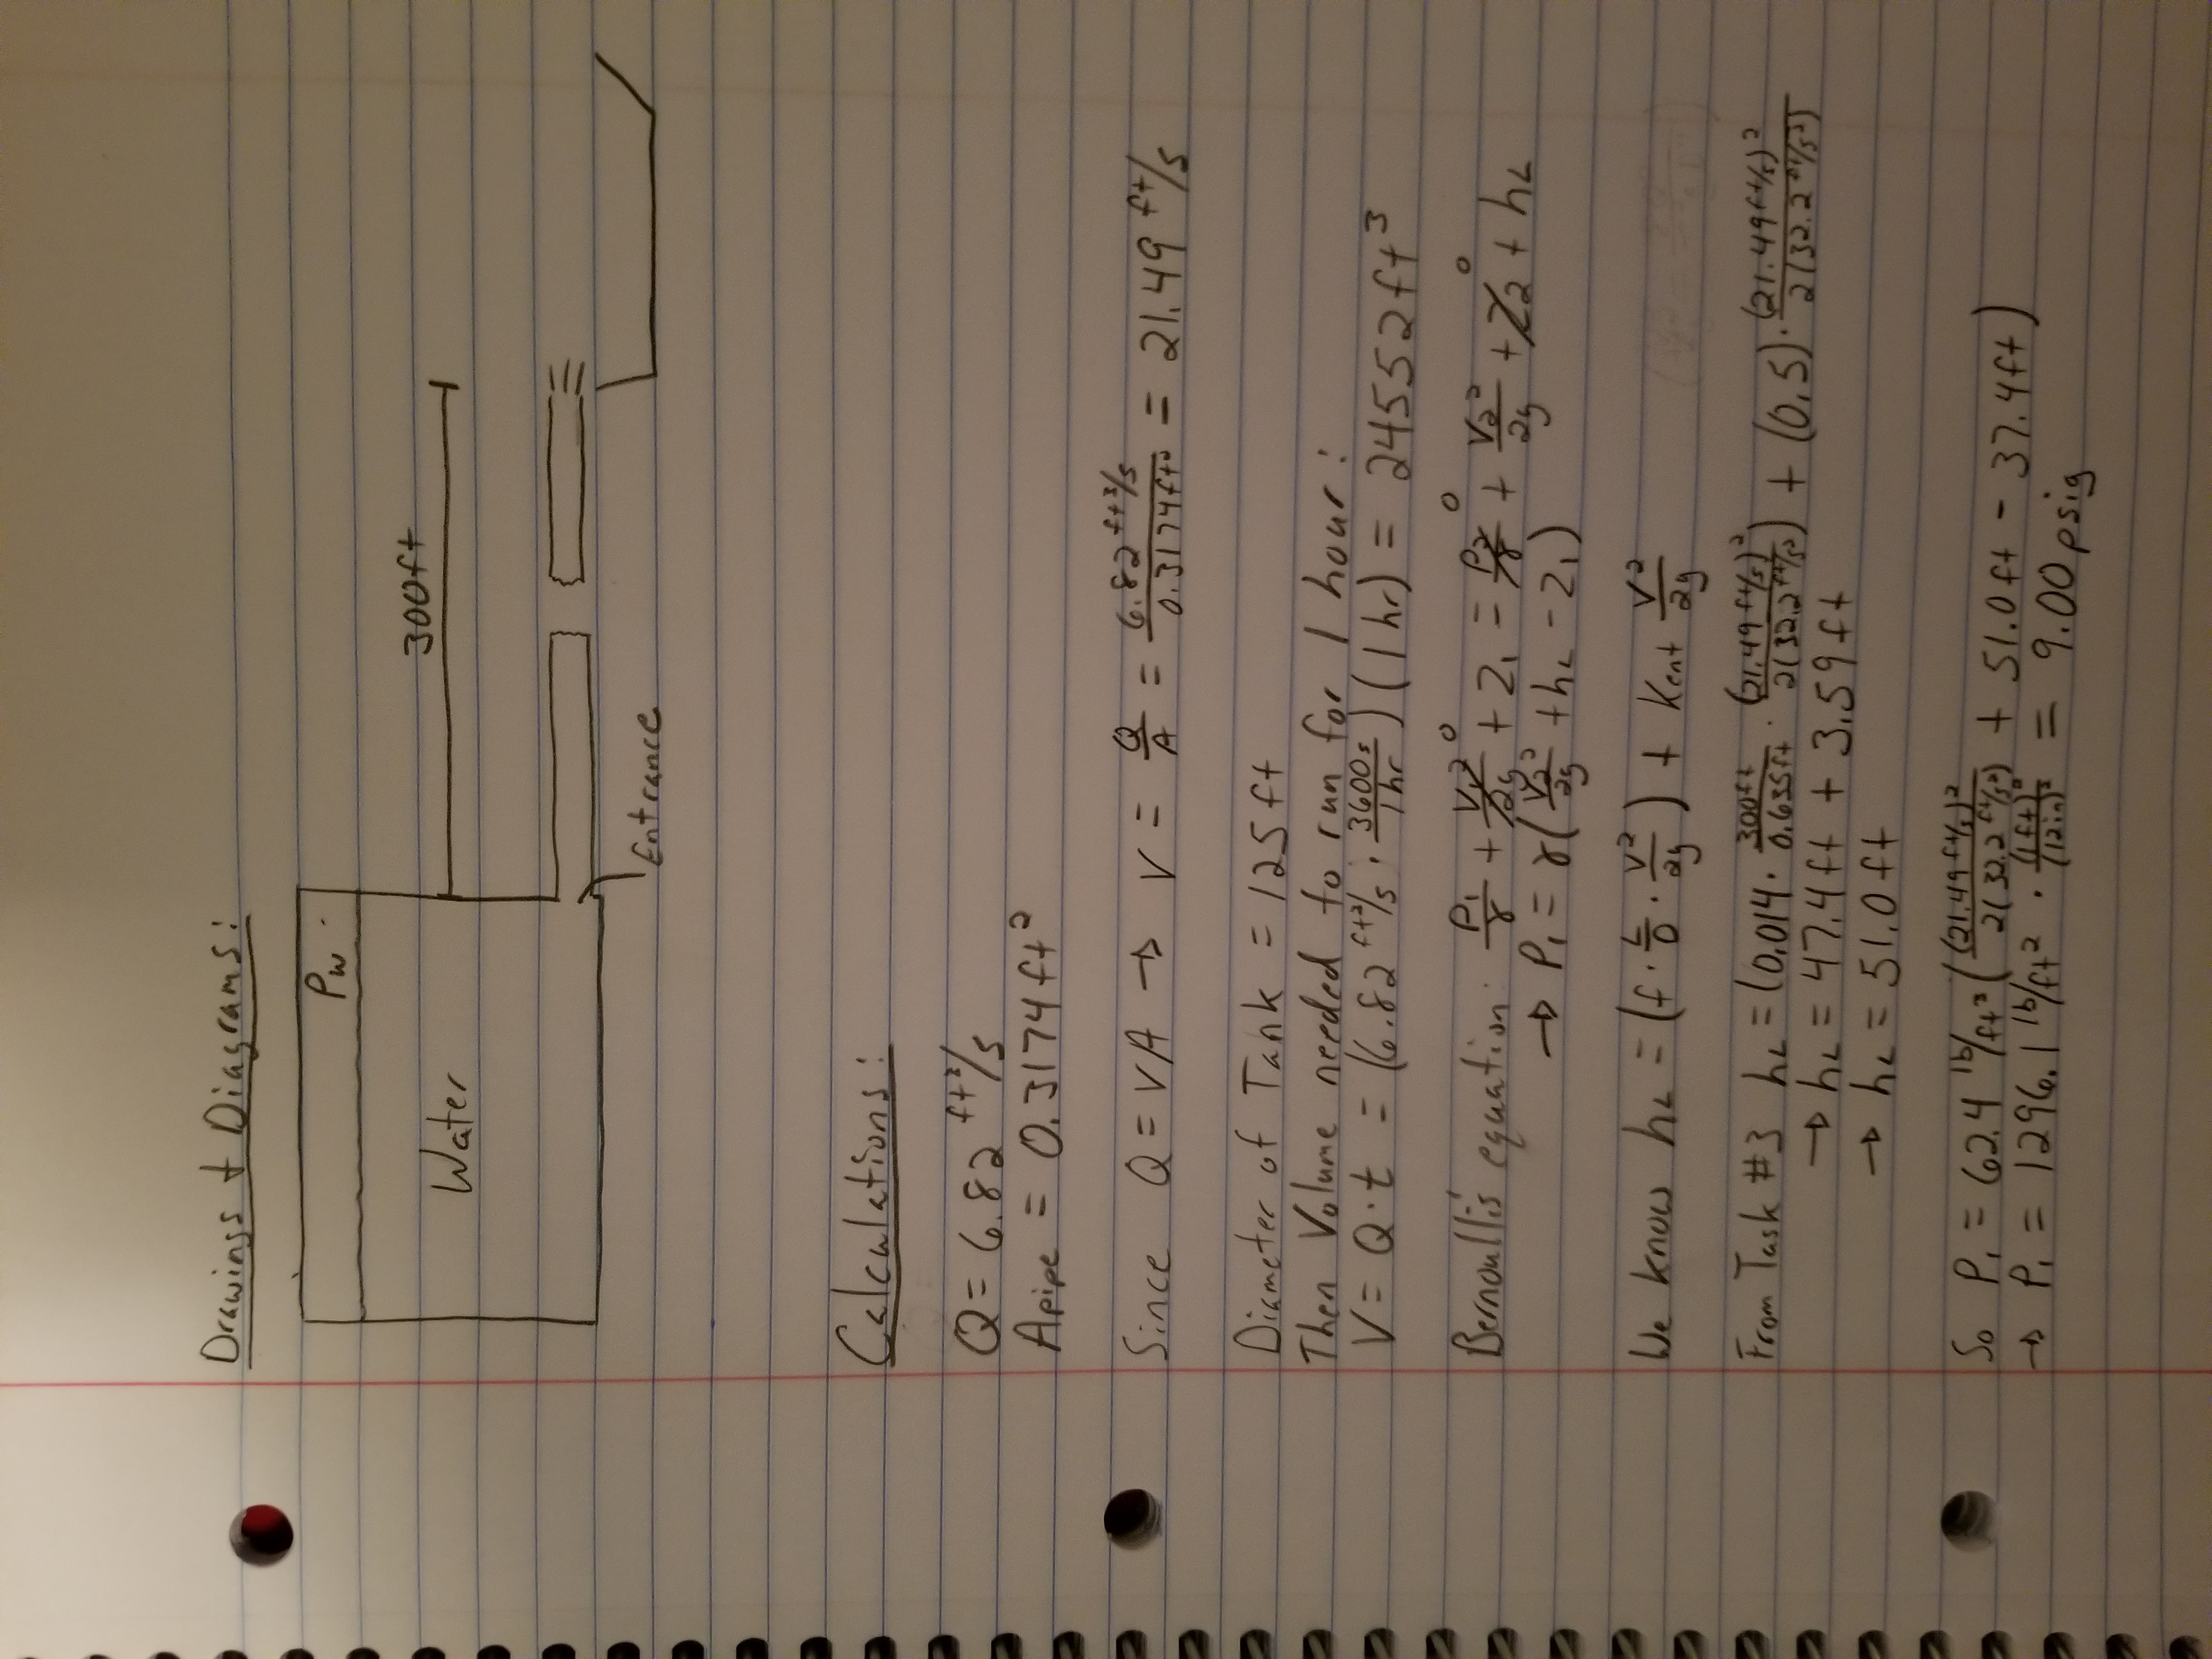 Drawings & Diagrams:
300ft
Pw
Water
Entrance
Calculations:
Q = 6.82 ft³/s
Apipe = 0.3174 ft²
Since Q = VA → V = Q/A = 6.82 ft³/s / 0.3174 ft² = 21.49 ft/s
Diameter of Tank = 125 ft
Then Volume needed to run for 1 hour:
V = Q · t = (6.82 ft³/s · 3600 s / 1 hr) (1 hr) = 24552 ft³
Bernoulli's equation: P₁/γ + V₁²/2g⁰ + z₁ = P₂/γ⁰ + V₂²/2g + z₂⁰ + hL
→ P₁ = γ(V₂²/2g + hL - z₁)
We know hL = (f · L/D · V²/2g) + Kent V²/2g
From Task #3 hL = (0.014 · 300ft / 0.635ft · (21.49 ft/s)² / 2(32.2 ft/s²)) + (0.5) · (21.49 ft/s)² / 2(32.2 ft/s²)
→ hL = 47.4 ft + 3.59 ft
→ hL = 51.0 ft
So P₁ = 62.4 lb/ft³ ((21.49 ft/s)² / 2(32.2 ft/s²) + 51.0 ft - 37.4 ft)
→ P₁ = 1296.1 lb/ft² · (1 ft)² / (12 in)² = 9.00 psig